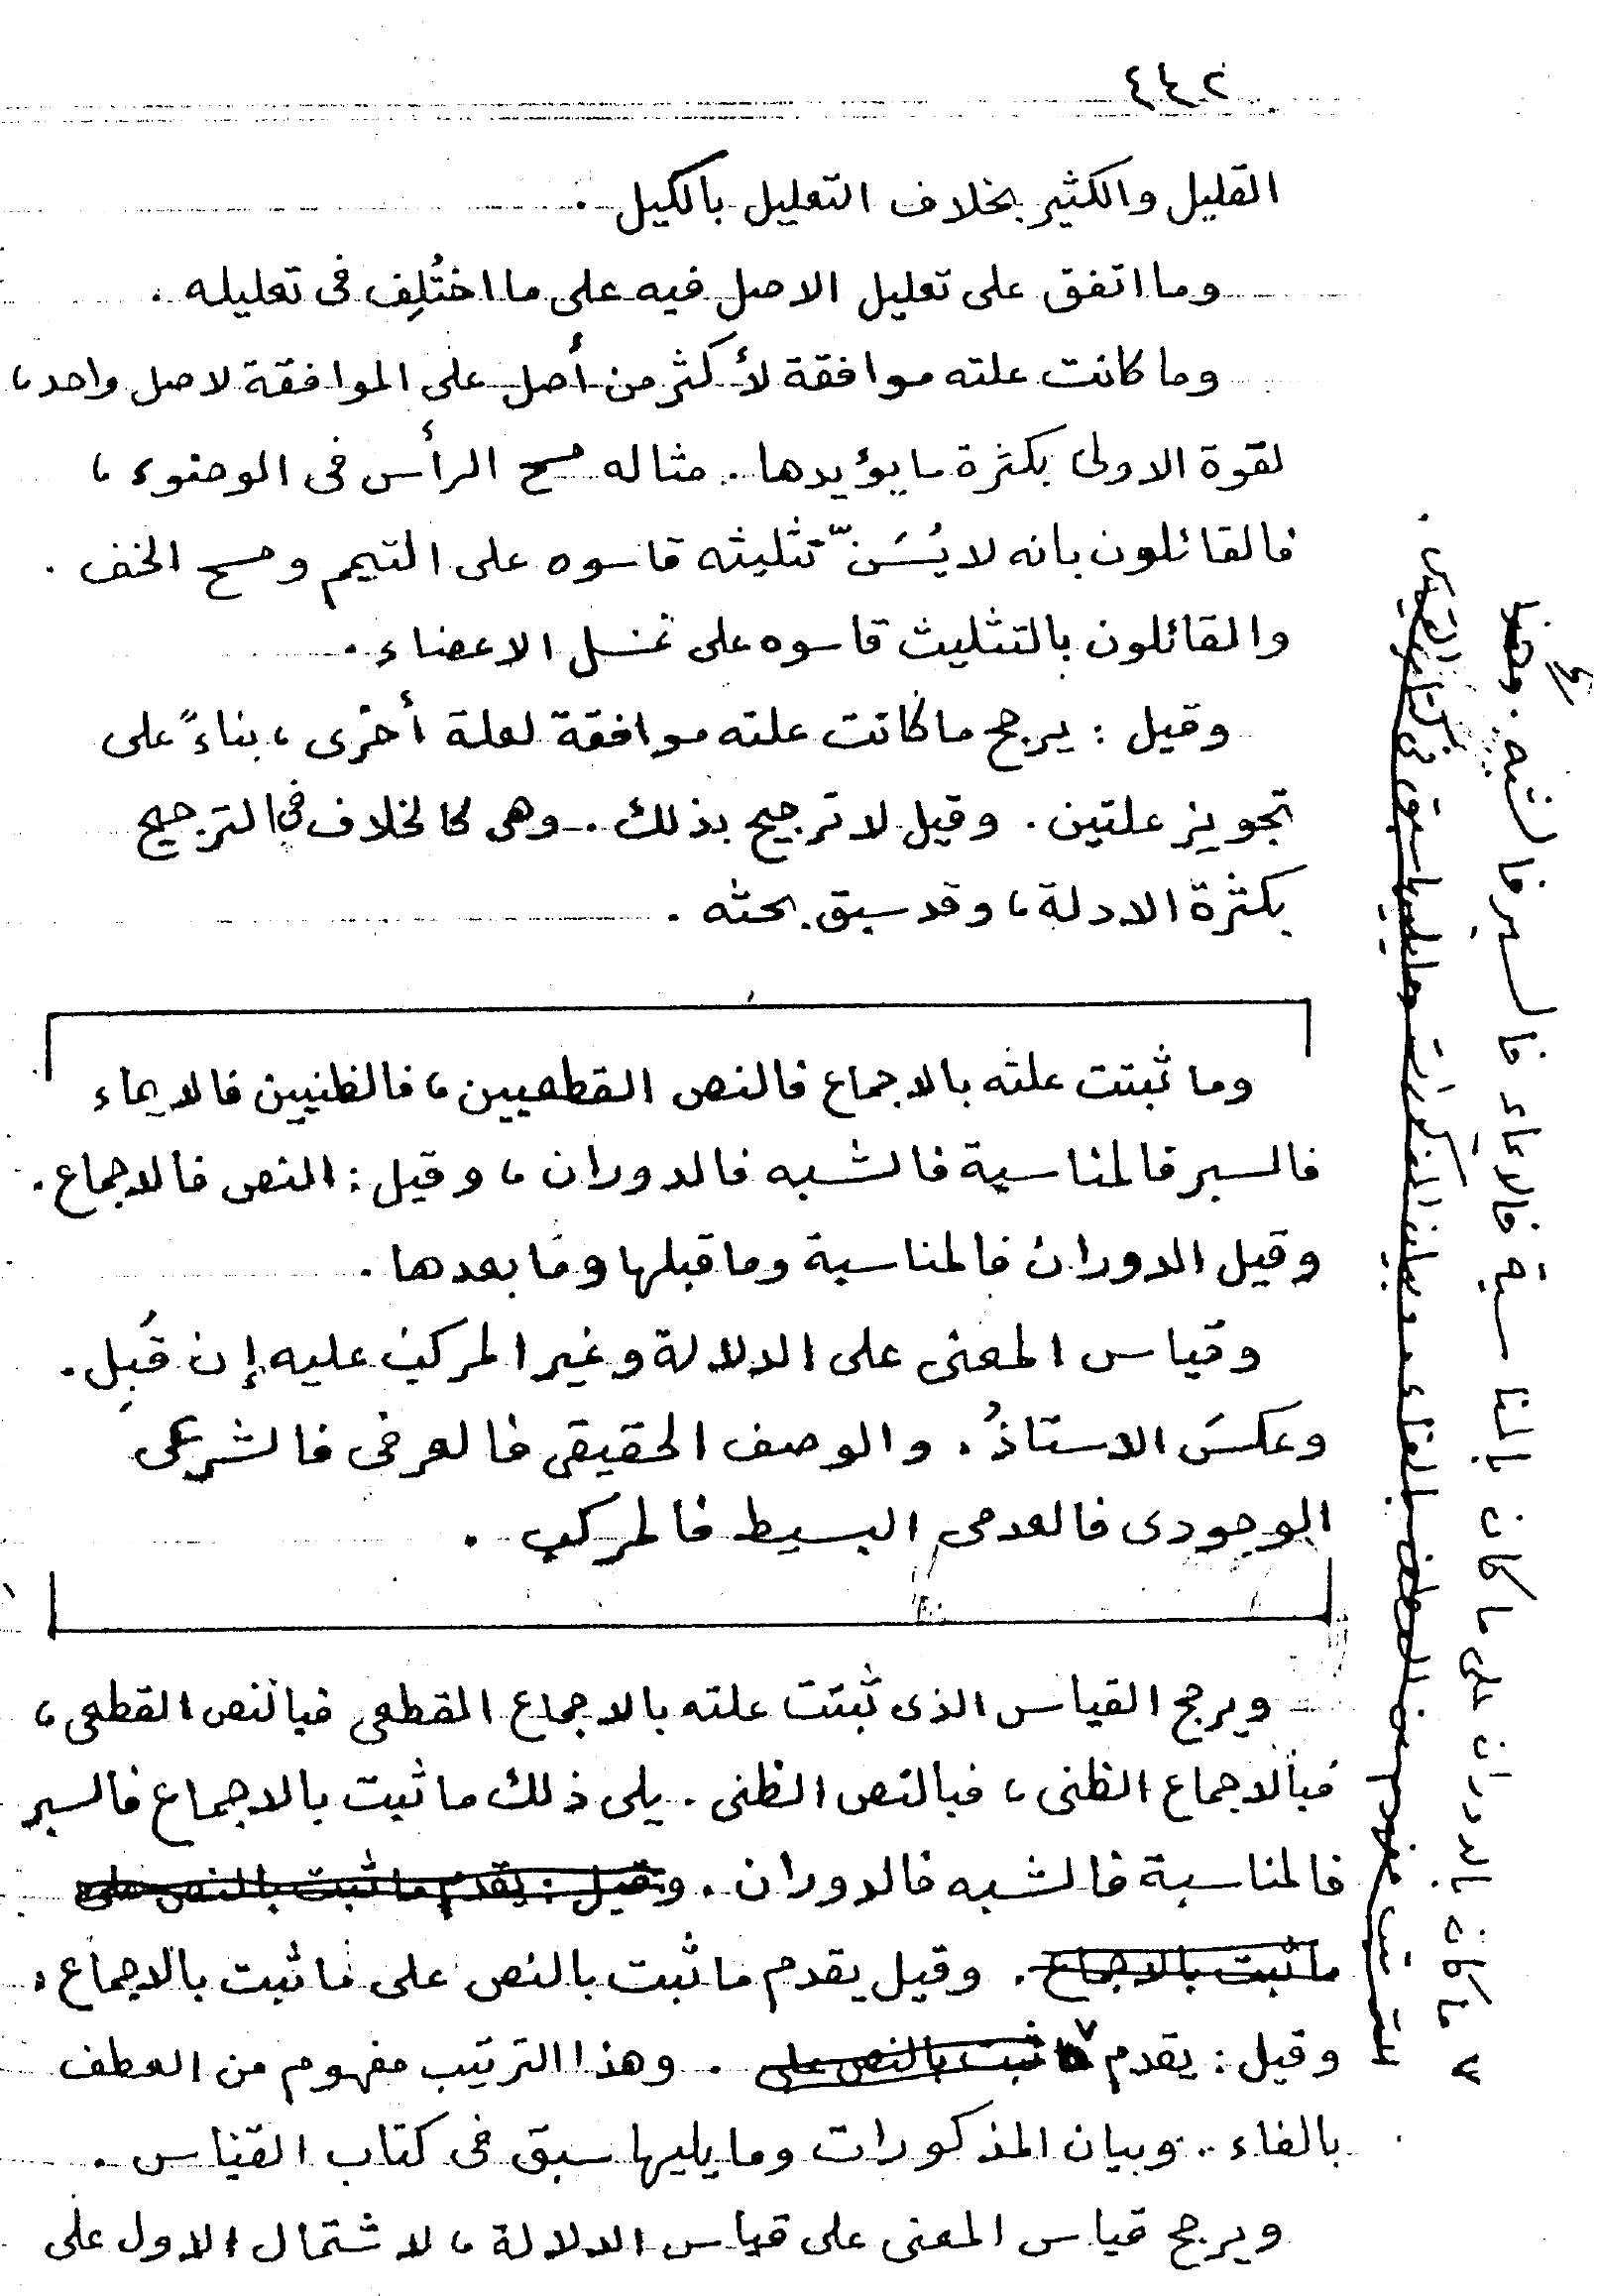 ٢٤٤
القليل والكثير بخلاف التعليل بالكيل .
وما اتفق على تعليل الاصل فيه على ما اختُلِف فى تعليله .
وما كانت علته موافقة لأكثر من أصل على الموافقة لاصل واحد ،
لقوة الاولى بكثرة ما يؤيدها . مثاله مسح الرأس فى الوضوء ،
فالقائلون بانه لا يُسَنّ تثليثه قاسوه على التيمم ومسح الخف .
والقائلون بالتثليث قاسوه على غسل الاعضاء .
وقيل : يرجح ما كانت علته موافقة لعلة أخرى ، بناءً على
تجويز علتين . وقيل لا ترجيح بذلك . وهى كالخلاف فى الترجيح
بكثرة الادلة ، وقد سبق بحثه .
وما ثبتت علته بالاجماع فالنص القطعيين ، فالظنيين فالايماء
فالسبر فالمناسبة فالشبه فالدوران ، وقيل : النص فالاجماع .
وقيل الدوران فالمناسبة وما قبلها وما بعدها .
وقياس المعنى على الدلالة وغير المركب عليه إن قُبِل .
وعكسَ الاستاذُ . والوصف الحقيقى فالعرفى فالشرعى
الوجودى فالعدمى البسيط فالمركب .
ويرجح القياس الذى ثبتت علته بالاجماع القطعى فبالنص القطعى ،
فبالاجماع الظنى ، فبالنص الظنى . يلى ذلك ما ثبت بالاجماع فالسبر
فالمناسبة فالشبه فالدوران . وقيل : يقدم ما ثبت بالنص على
ما ثبت بالاجماع . وقيل يقدم ما ثبت بالنص على ما ثبت بالاجماع ،
وقيل : يقدم ما ثبت بالنص على . وهذا الترتيب مفهوم من العطف
بالفاء .. وبيان المذكورات وما يليها سبق فى كتاب القياس .
ويرجح قياس المعنى على قياس الدلالة ، لاشتمال الاول على
٧ ما كان بالدوران على ما كان بالمناسبة فالايماء فالسبر فالشبه . وهذا
الترتيب مفهوم من العطف بالفاء . وبيان المذكورات وما يليها سبق فى كتاب القياس .